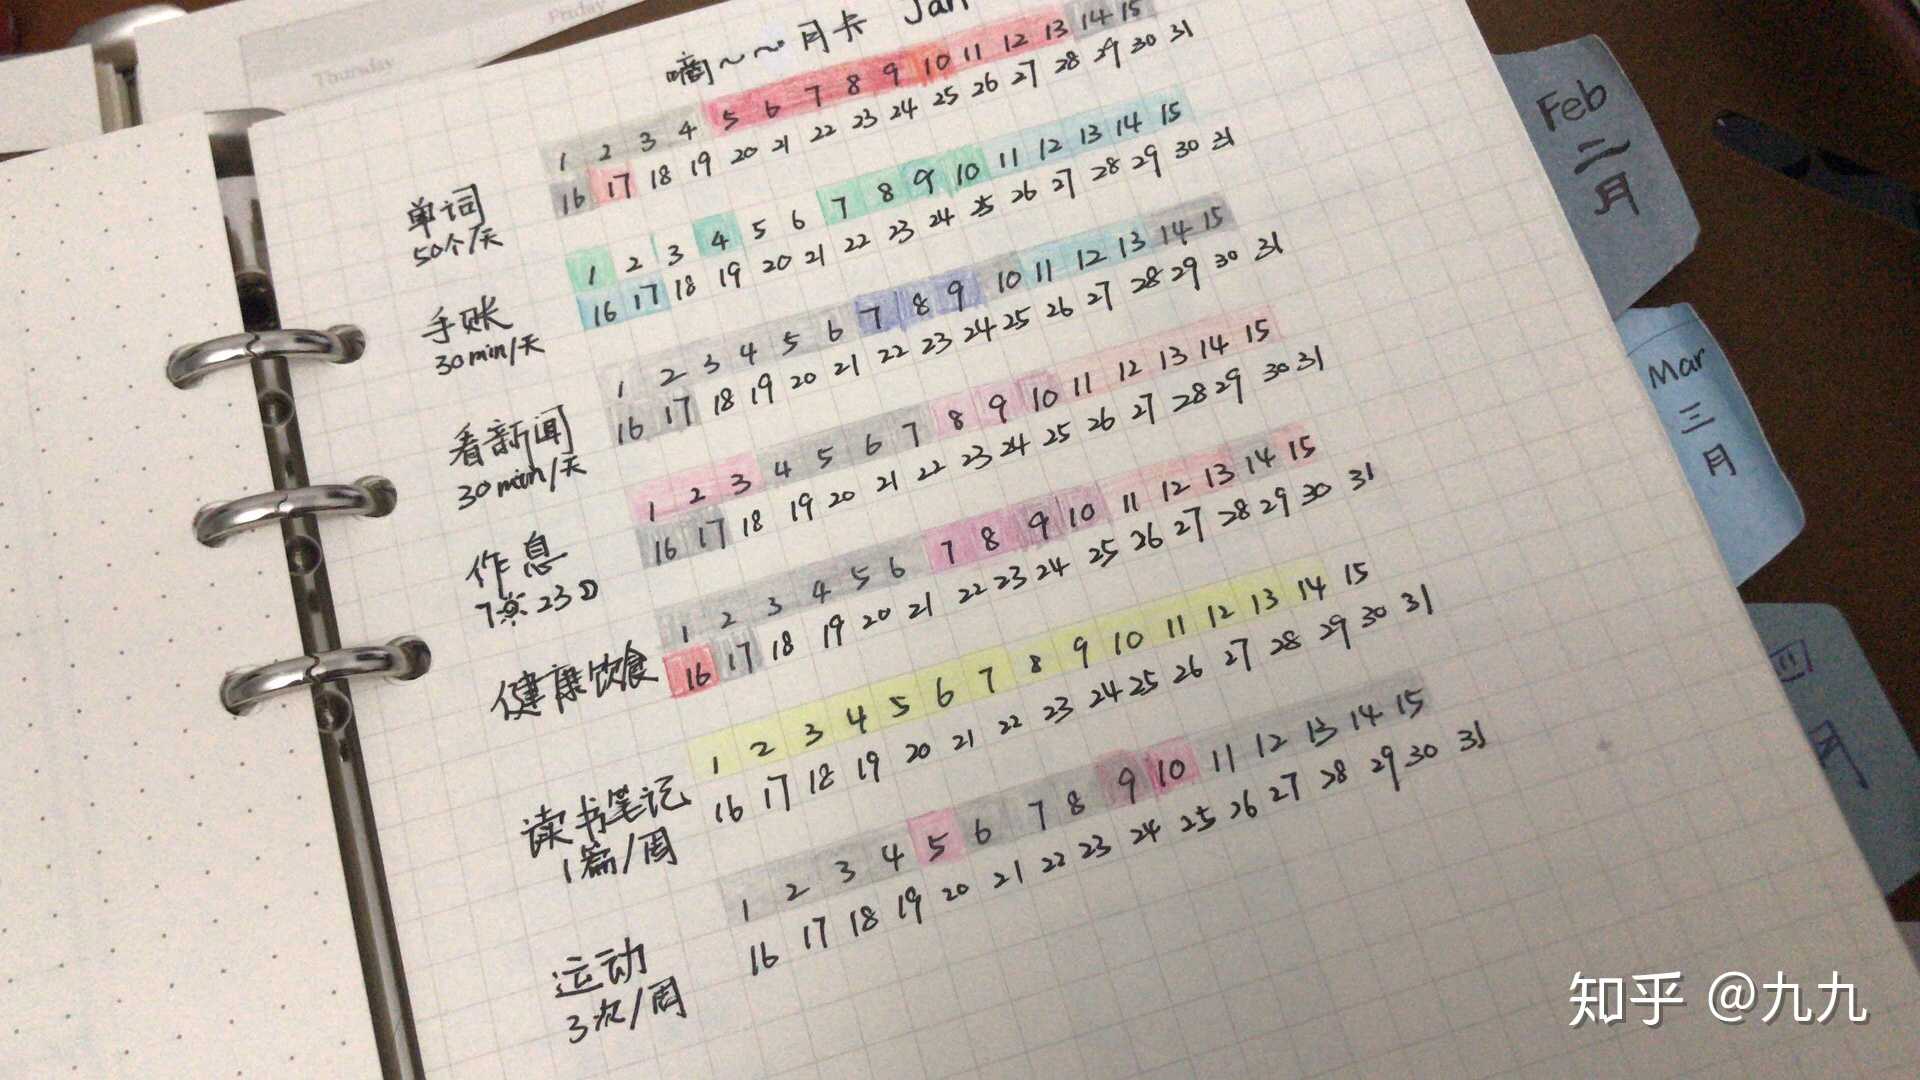 Friday
Thursday
嘀~~月卡 Jan
1 2 3 4 5 6 7 8 9 10 11 12 13 14 15
单词 16 17 18 19 20 21 22 23 24 25 26 27 28 29 30 31
50个/天
1 2 3 4 5 6 7 8 9 10 11 12 13 14 15
手账 16 17 18 19 20 21 22 23 24 25 26 27 28 29 30 31
30min/天
1 2 3 4 5 6 7 8 9 10 11 12 13 14 15
看新闻 16 17 18 19 20 21 22 23 24 25 26 27 28 29 30 31
30min/天
1 2 3 4 5 6 7 8 9 10 11 12 13 14 15
作息 16 17 18 19 20 21 22 23 24 25 26 27 28 29 30 31
7 23
1 2 3 4 5 6 7 8 9 10 11 12 13 14 15
健康饮食 16 17 18 19 20 21 22 23 24 25 26 27 28 29 30 31
1 2 3 4 5 6 7 8 9 10 11 12 13 14 15
读书笔记 16 17 18 19 20 21 22 23 24 25 26 27 28 29 30 31
1篇/周
1 2 3 4 5 6 7 8 9 10 11 12 13 14 15
运动 16 17 18 19 20 21 22 23 24 25 26 27 28 29 30 31
3次/周
Feb
二月
Mar
三月
四月
知乎 @九九